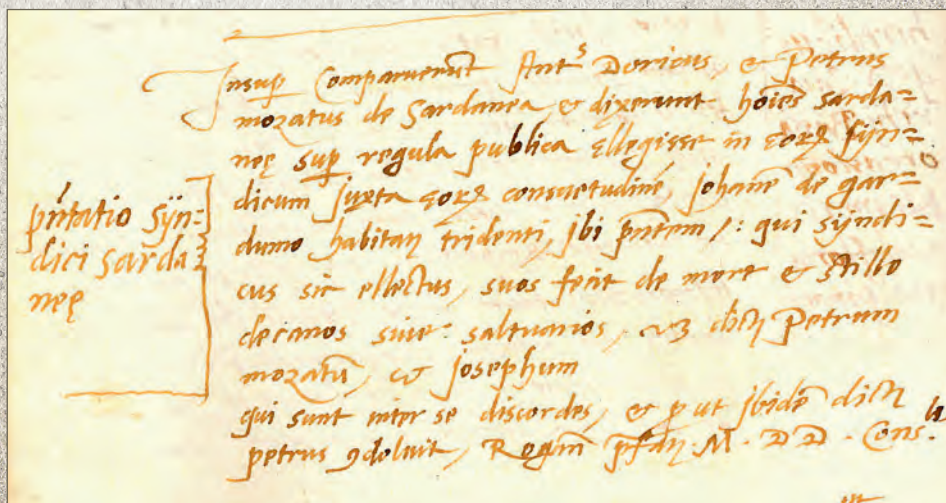 Insup̄ Comparuerūt Ant.s Doricus, et Petrus
mozatus de Sardanea, et dixerunt hoīes sarda=
neę sup̄ regula publica ellegisse in eorꝝ sÿn=
dicum juxta eorꝝ consuetudinē, johanē de gar=
dumo habitaŋ tridenti, jbi pn̄tem /: qui sÿndi=
cus sic ellectus, suos fecit de more et stillo
decanos siue saltuarios, vꝫ dictŋ Petrum
mozatū, et josephum
qui sunt inter se discordes, et ꝑ ut jbidē dictŋ
petrus ꝯdoluit, Rogañ pfatŋ. M. D D. Cons.
pn̄tatio sÿn=
dici sarda=
neę